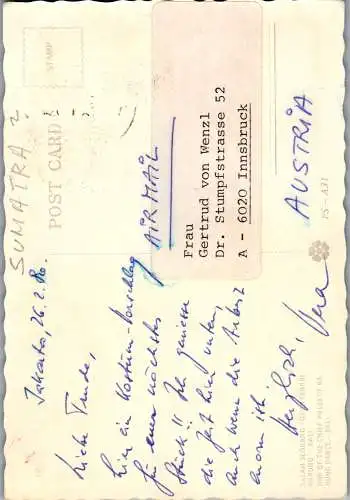 STAMP
POST CARD
SUMATRA ?
AIRMAIL
Frau
Gertrud von Wenzl
Dr. Stumpfstrasse 52
A - 6020 Innsbruck
AUSTRIA
PS-A31
Jakarta, 26.2.80.
Liebe Trude,
hier ein Kostüm-Vorschlag
für euer nächstes
Stück!! Ich genieße
die Zeit hier unten,
auch wenn die Arbeit
enorm ist.
Herzlichst,
Vera